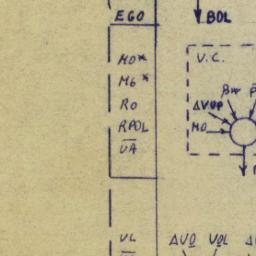 EGO
BOL
MO*
M6*
RO
RPOL
UA
V.C.
ΔVUP
MO
VL
ΔVO
VOL